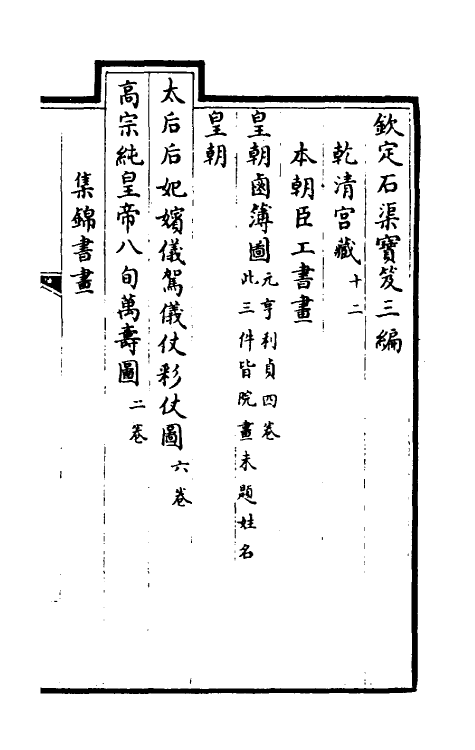 欽定石渠寶笈三編
乾清宮藏十二
本朝臣工書畫
皇朝鹵簿圖元亨利貞四卷
此三件皆院畫未題姓名
皇朝
太后后妃嬪儀駕儀仗彩仗圖六卷
高宗純皇帝八旬萬壽圖二卷
集錦書畫